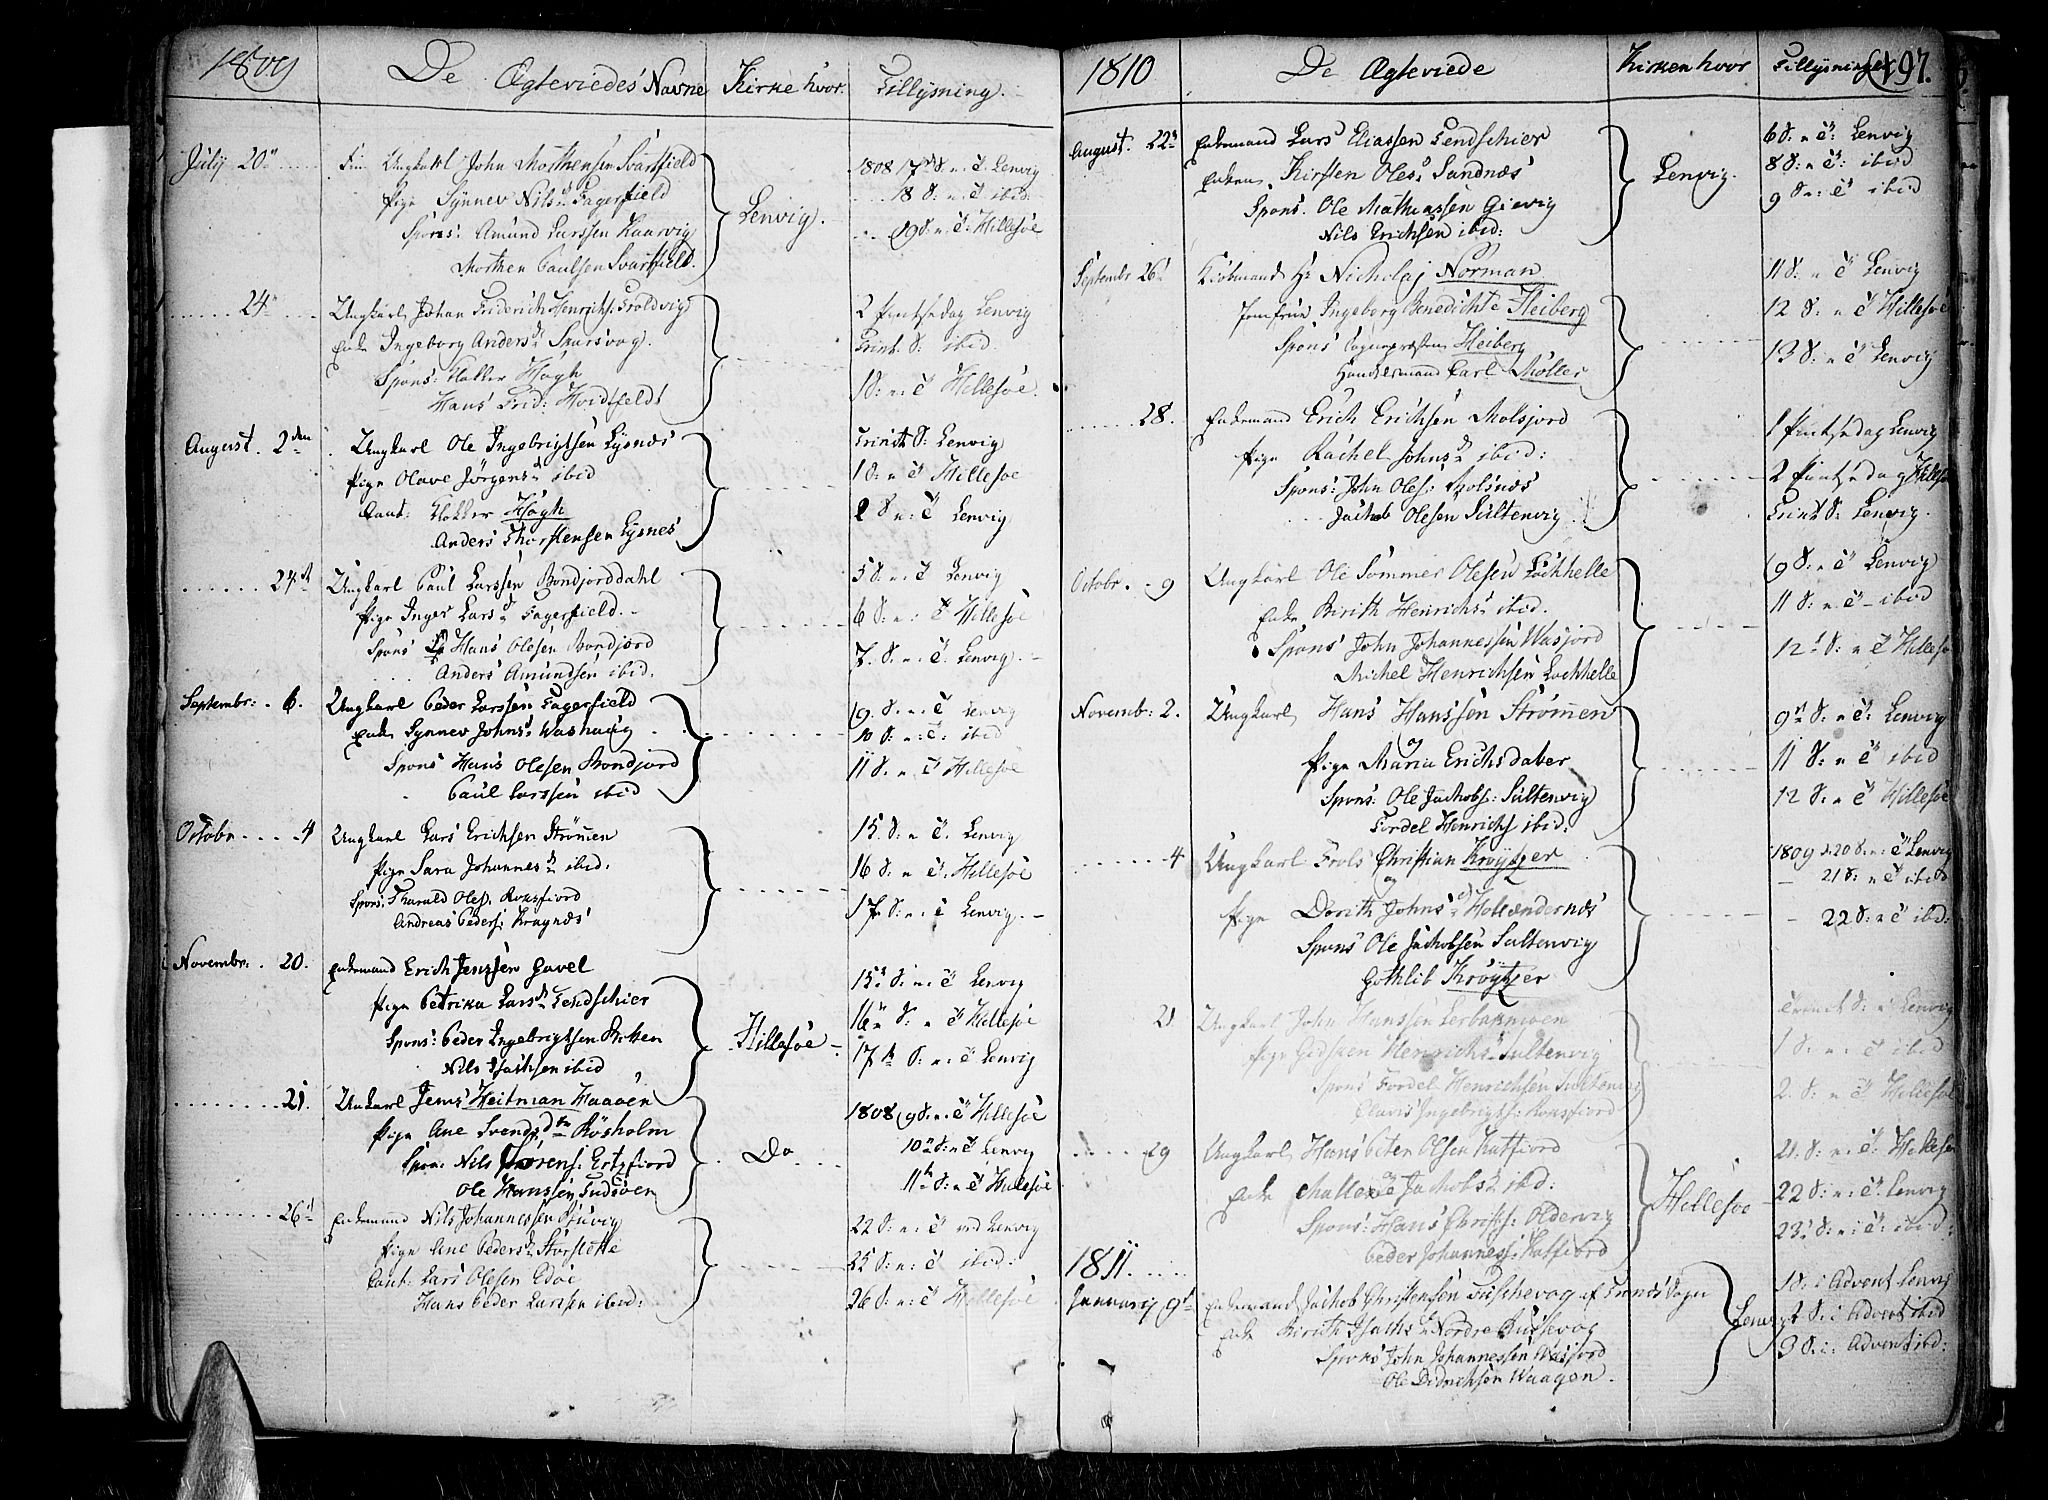 1809
De Ægteviedes Navne
Kirke hvor.
Tillysning.
July 20de
Fin Ungkarl John Morthensen Svartfield
Pige Synnev Nilsd. Fagerfield
Spons: Amund Larssen Kaarvig
Morthen Paulsen Svartfield.
Lenvig.
1808 17d S. n. T. Lenvig
18 S: n. T. ibid.
19 S: n: T: Hillesöe
24de
Ungkarl Johan Friderich Henrichs: Troldvig
Enke Ingeborg Andersd.
Spons: Klokker Högh
Hans Frid: Hvidtfeldt
2 Pintsedag Lenvig
Trinit. S: ibid
1 S: n: T. Hillesöe.
August. 2den
Ungkarl Ole Ingebrigtsen Lysnæs
Pige Olave Jörgensd. ibid
Caut: Klokker Högh
Anders Thorstensen Lysnes
Trinit: S: Lenvig
1 S: n T Hillesöe
2 S n: T Lenvig
24de
Ungkarl Paul Larssen Bondjorddahl
Pige Inger Larsd. Fagerfield.
Spons Hans Olesen Bondjord
Anders Amundsen ibid.
5 S: n: T Lenvig
6 S: n: T Hillesöe
7. S: n: T. Lenvig.
Septembr: 6.
Ungkarl Peder Larssen Fagerfield
Enke Synnev Johnsd. Washaug
Spons Hans Olesen Bondjord
Paul Larssen ibid
9. S: n: T Lenvig
10 S: n: T: ibid
11 S: n T Hillesöe
Octobr 4
Ungkarl Lars Erichsen Strömen
Pige Sara Johannesd. ibid.
Spons: Tharald Oles: Roxfiord
Andreas Peders: Kragnæs
15. S: n T. Lenvig
16 S: n T. Hillesöe
17 S: n: T Lenvig.
Novembr: 20.
Enkemand Erich Jenssen Gavel
Pige Petrika Larsd. Tendschier
Spons: Peder Ingebrigtsen Botten
Nils Isachsen ibid
Hillesöe
15d S: n: T Lenvig
16de S: n T Hillesöe
17de S: n: T Lenvig
21.
Unkarl Jens Heitman Haaøen
Pige Ane Svendsd. Rösholm
Spon: Nils Sörens: Ertzfiord
Ole Hanssen Tudsöen
Do
1808 9 S: n: T Hillesöe
10de S: n T Lenvig
11te S: n T Hillesöe
26de
Enkemand Nils Johannessen
Pige Ane Pedersd. Storslette
Caut: Lars Olesen Edöe
Hans Peder Larssen ibid:
22 S: n: T ved Lenvig
25 S: n: T ibid:
26 S: n: T Hillesöe
1810
De Ægteviede
Kirken hvor
Tillysninger
197.
August. 22de
Enkemand Lars Eliassen Tendschier
Enken Kirsten Olesd. Sandnæs
Spons. Ole Mathiassen Gievig
Nils Erichsen ibid:
Lenvig.
6 S. n T: Lenvig
8 S: n T: ibid
9 S n: T ibid
Septembr 26d
Kiöbmand Hr Nicholaj Norman
Jomfrue Ingeborg Benedichte Heiberg
Spons Sognepræsten Heiberg
Handelsmand Carl Möller
11 S: n T Lenvig
12 S: n T Hillesöe
13 S: n T Lenvig
28.
Enkemand Erich Erichsen Molsjord
Pige Rachel Johnsd. ibid:
Spons: John Oles: Molsnæs
Jachob Olesen Sultenvig
1 Pintsedag Lenvig
2 Pintsedag Hilles
Trinit S: Lenvig.
Octobr. 9
Ungkarl Ole Sommer Olesen Lochhelle
Enke Birith Henrichsd. ibid.
Spons John Johannessen Wasjord
Michel Henrichsen Lochhelle
9 S. n T Lenvig
11 S: n T ibid
12d S: n T Hilles
Novemb: 2.
Ungkarl Hans Hanssen Strömen
og
Pige Maria Erichsdater
Spons: Ole Jachobs: Sultenvig
Tordel Henrichs ibid:
9de S: n T: Lenvig
11 S: n T ibid
12 S: n T Hillesöe
4
Ungkarl Trols Christian Kröytzer
og
Pige Dorith Johnsd. Hollændernæs
Spons Ole Jachobsen Sultenvig
Gothlib Kröytzer
1809 d. 20 S: n: T Lenvig
21 S: n T ibid
22 S: n T ibid:
21
Ungkarl John Hanssen Lerbakmoen
Pige Gidsken Henrichsd. Sultenvig
Spons Tordel Henrichsen Sultenvig
Claus Ingebrigts: Roxfiord
Trinit S: i Lenvig
1 S: n: T ibid
2. S: n T Hillesöe
29
Ungkarl Hans Peter Olsen Katfiord
og
Enke Malle Jachobsd. ibid:
Spons: Hans Christs: Oldervig
Peder Johanness: Katfiord
Hillesöe
21. S: n: T: Hillesö
22 S: n: T. Lenvig
23d S: n: T: ibid:
1811.
January 9de
Enkemand Jachob Christensen Fuschevog af Tranöe Sogn
Enke Birith Isachsd. Nordre Bussevog
Spons John Johannessen Wasjord
Ole Didrichsen Waagen.
Lenvig
1 S. i Advent Lenvig
2 S: i Advent ibid
3 S. i: Advent ibid: